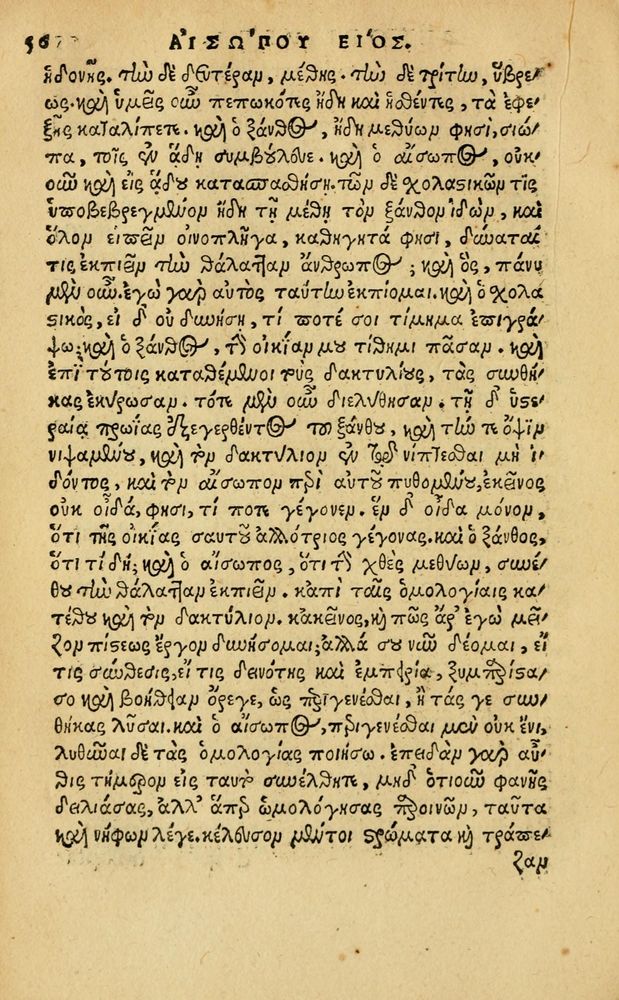 56 ΑΙΣΩΠΟΥ ΒΙΟΣ.
ἡδονῆς. τὴν δὲ δευτέραν, μέθης. τὴν δὲ τρίτην, ὕβρε-
ως. καὶ ὑμεῖς οὖν πεπωκότες ἤδη καὶ ἡσθέντες, τὰ ἐφε-
ξῆς καταλίπετε. καὶ ὁ ξάνθος, ἤδη μεθύων φησί, σιώ-
πα, τοῖς ἐν ᾅδῃ συμβούλευε. καὶ ὁ αἴσωπος, οὐκ-
οῦν καὶ εἰς ᾅδου κατασπασθήσῃ. τῶν δὲ σχολαστικῶν τις
ὑποβεβρεγμένον ἤδη τῇ μέθῃ τὸν ξάνθον ἰδὼν, καὶ
ὅλον εἰπεῖν οἰνοπλῆγα, καθηγητά φησι, δύναταί
τις ἐκπιεῖν τὴν θάλατταν ἄνθρωπος; καὶ ὃς, πάνυ
μὲν οὖν. ἐγὼ γὰρ αὐτὸς ταύτην ἐκπίομαι. καὶ ὁ σχολα
στικὸς, εἰ δ' οὐ δυνήσῃ, τί ποτέ σοι τίμημα ἐπιγρά-
ψω; καὶ ὁ ξάνθος, τὴν οἰκίαν μου τίθημι πᾶσαν. καὶ
ἐπὶ τούτοις καταθέμενοι τοὺς δακτυλίους, τὰς συνθή-
κας ἐκύρωσαν. τότε μὲν οὖν διελύθησαν. τῇ δ' ὑστε-
ραίᾳ πρωΐας ἐξεγερθέντος τοῦ ξάνθου, καὶ τήν τε ὄψιν
νιψαμένου, καὶ τὸν δακτύλιον ἐν τῷ νίπτεσθαι μὴ ἰ-
δόντος, καὶ τὸν αἴσωπον περὶ αὐτοῦ πυθομένου, ἐκεῖνος
οὐκ οἶδά, φησι, τί ποτε γέγονεν. ἓν δ' οἶδα μόνον,
ὅτι τῆς οἰκίας σαυτοῦ ἀλλότριος γέγονας. καὶ ὁ ξάνθος,
ὅτι τί δή; καὶ ὁ αἴσωπος, ὅτι τῇ χθὲς μεθύων, συνέ-
θου τὴν θάλατταν ἐκπιεῖν. κἀπὶ ταῖς ὁμολογίαις κα-
τέθου καὶ τὸν δακτύλιον. κἀκεῖνος, καὶ πῶς ἄρ' ἐγὼ μεῖ-
ζον πίστεως ἔργον δυνήσομαι; ἀλλά σου νῦν δέομαι, εἴ
τις σύνθεσις, εἴ τις δεινότης καὶ ἐμπειρία, ξυμπρᾶξα-
σο καὶ βοήθειαν ὄρεγε, ὡς περιγενέσθαι, ἢ τάς γε συν-
θήκας λῦσαι. καὶ ὁ αἴσωπος, περιγενέσθαι μὲν οὐκ ἔνι,
λυθῆναι δὲ τὰς ὁμολογίας ποιήσω. ἐπειδὰν γὰρ αὖ-
θις τήμερον εἰς ταυτὸ συνέλθητε, μηδ' ὁτιοῦν φανῇς
δειλιάσας, ἀλλ' ἅπερ ὡμολόγησας παροινῶν, ταῦτα
καὶ νήφων λέγε. κέλευσον μέντοι στρώματα καὶ τράπε-
ζαν